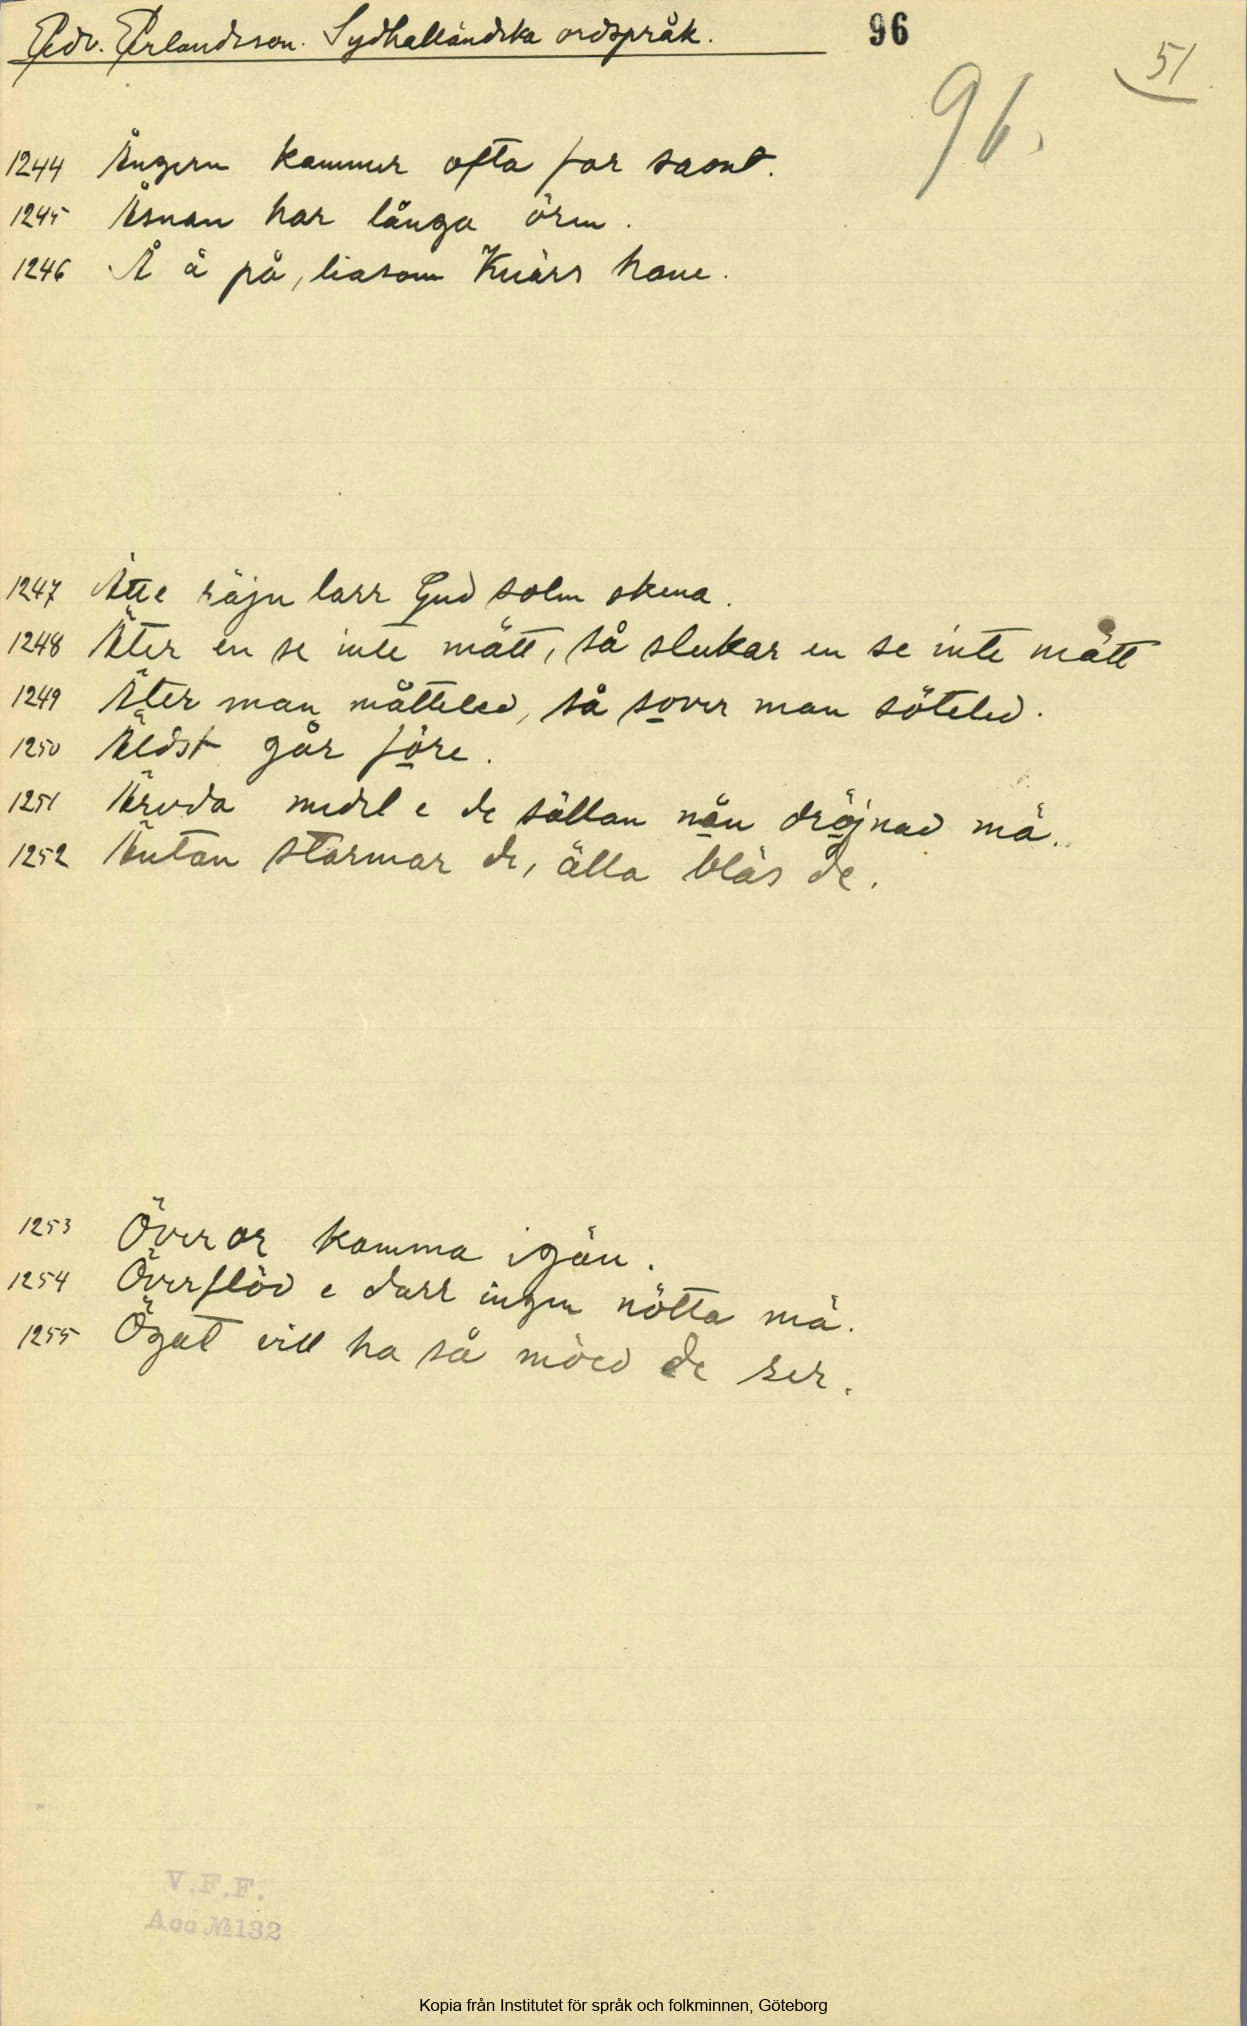 Edv. Erlandsson. Sydhalländska ordspråk. 96
51
96.
1244 Ångern kommer ofta for saont.
1245 Åsnan har långa örn.
1246 Å å på, liasom Knärs hane.
1247 Åtte räjn larr Gud soln skena.
1248 Äter en se inte mätt, så slukar en se inte mätt
1249 Äter man måtteled, så sover man söteled.
1250 Äldst går före.
1251 Ärvda medel e de sällan nån dröjnad mä.
1252 Äntan stormar de, älla blås de.
1253 Överor komma igän.
1254 Överflöd e darr ingen nötta mä.
1255 Ögat vill ha så möed de ser.
V.F.F.
Acc №132
Kopia från Institutet för språk och folkminnen, Göteborg